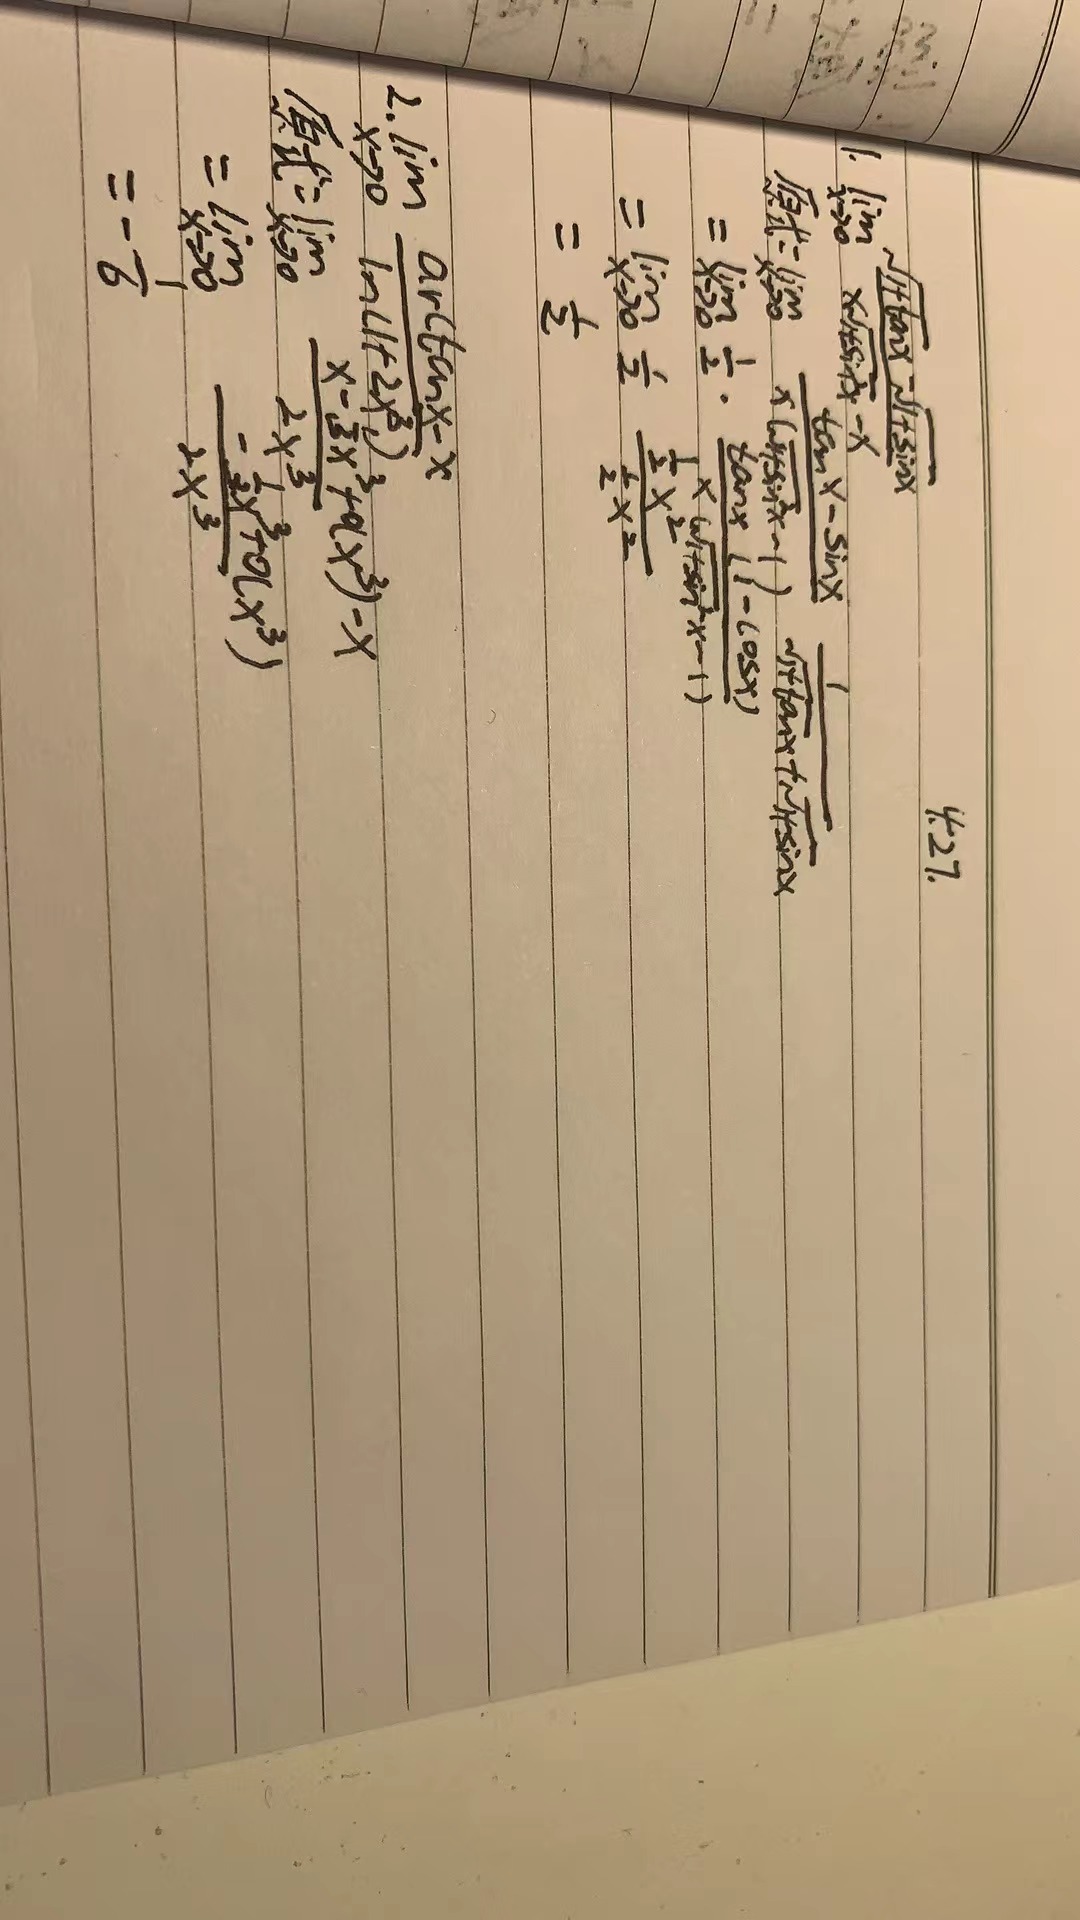 4.27.
1. lim x→0 (√(1+tanx) - √(1+sinx)) / (x√(1+sin²x) - x)
原式 = lim x→0 (tanx - sinx) / (x(√(1+sin²x) - 1)) 1 / (√(1+tanx) + √(1+sinx))
= lim x→0 1/2 · (tanx(1 - cosx)) / (x(√(1+sin²x) - 1))
= lim x→0 1/2 (1/2 x²) / (1/2 x²)
= 1/2
2. lim x→0 (arctanx - x) / ln(1+2x³)
原式 = lim x→0 (x - 1/3 x³ + o(x³) - x) / 2x³
= lim x→0 (-1/3 x³ + o(x³)) / 2x³
= - 1/6